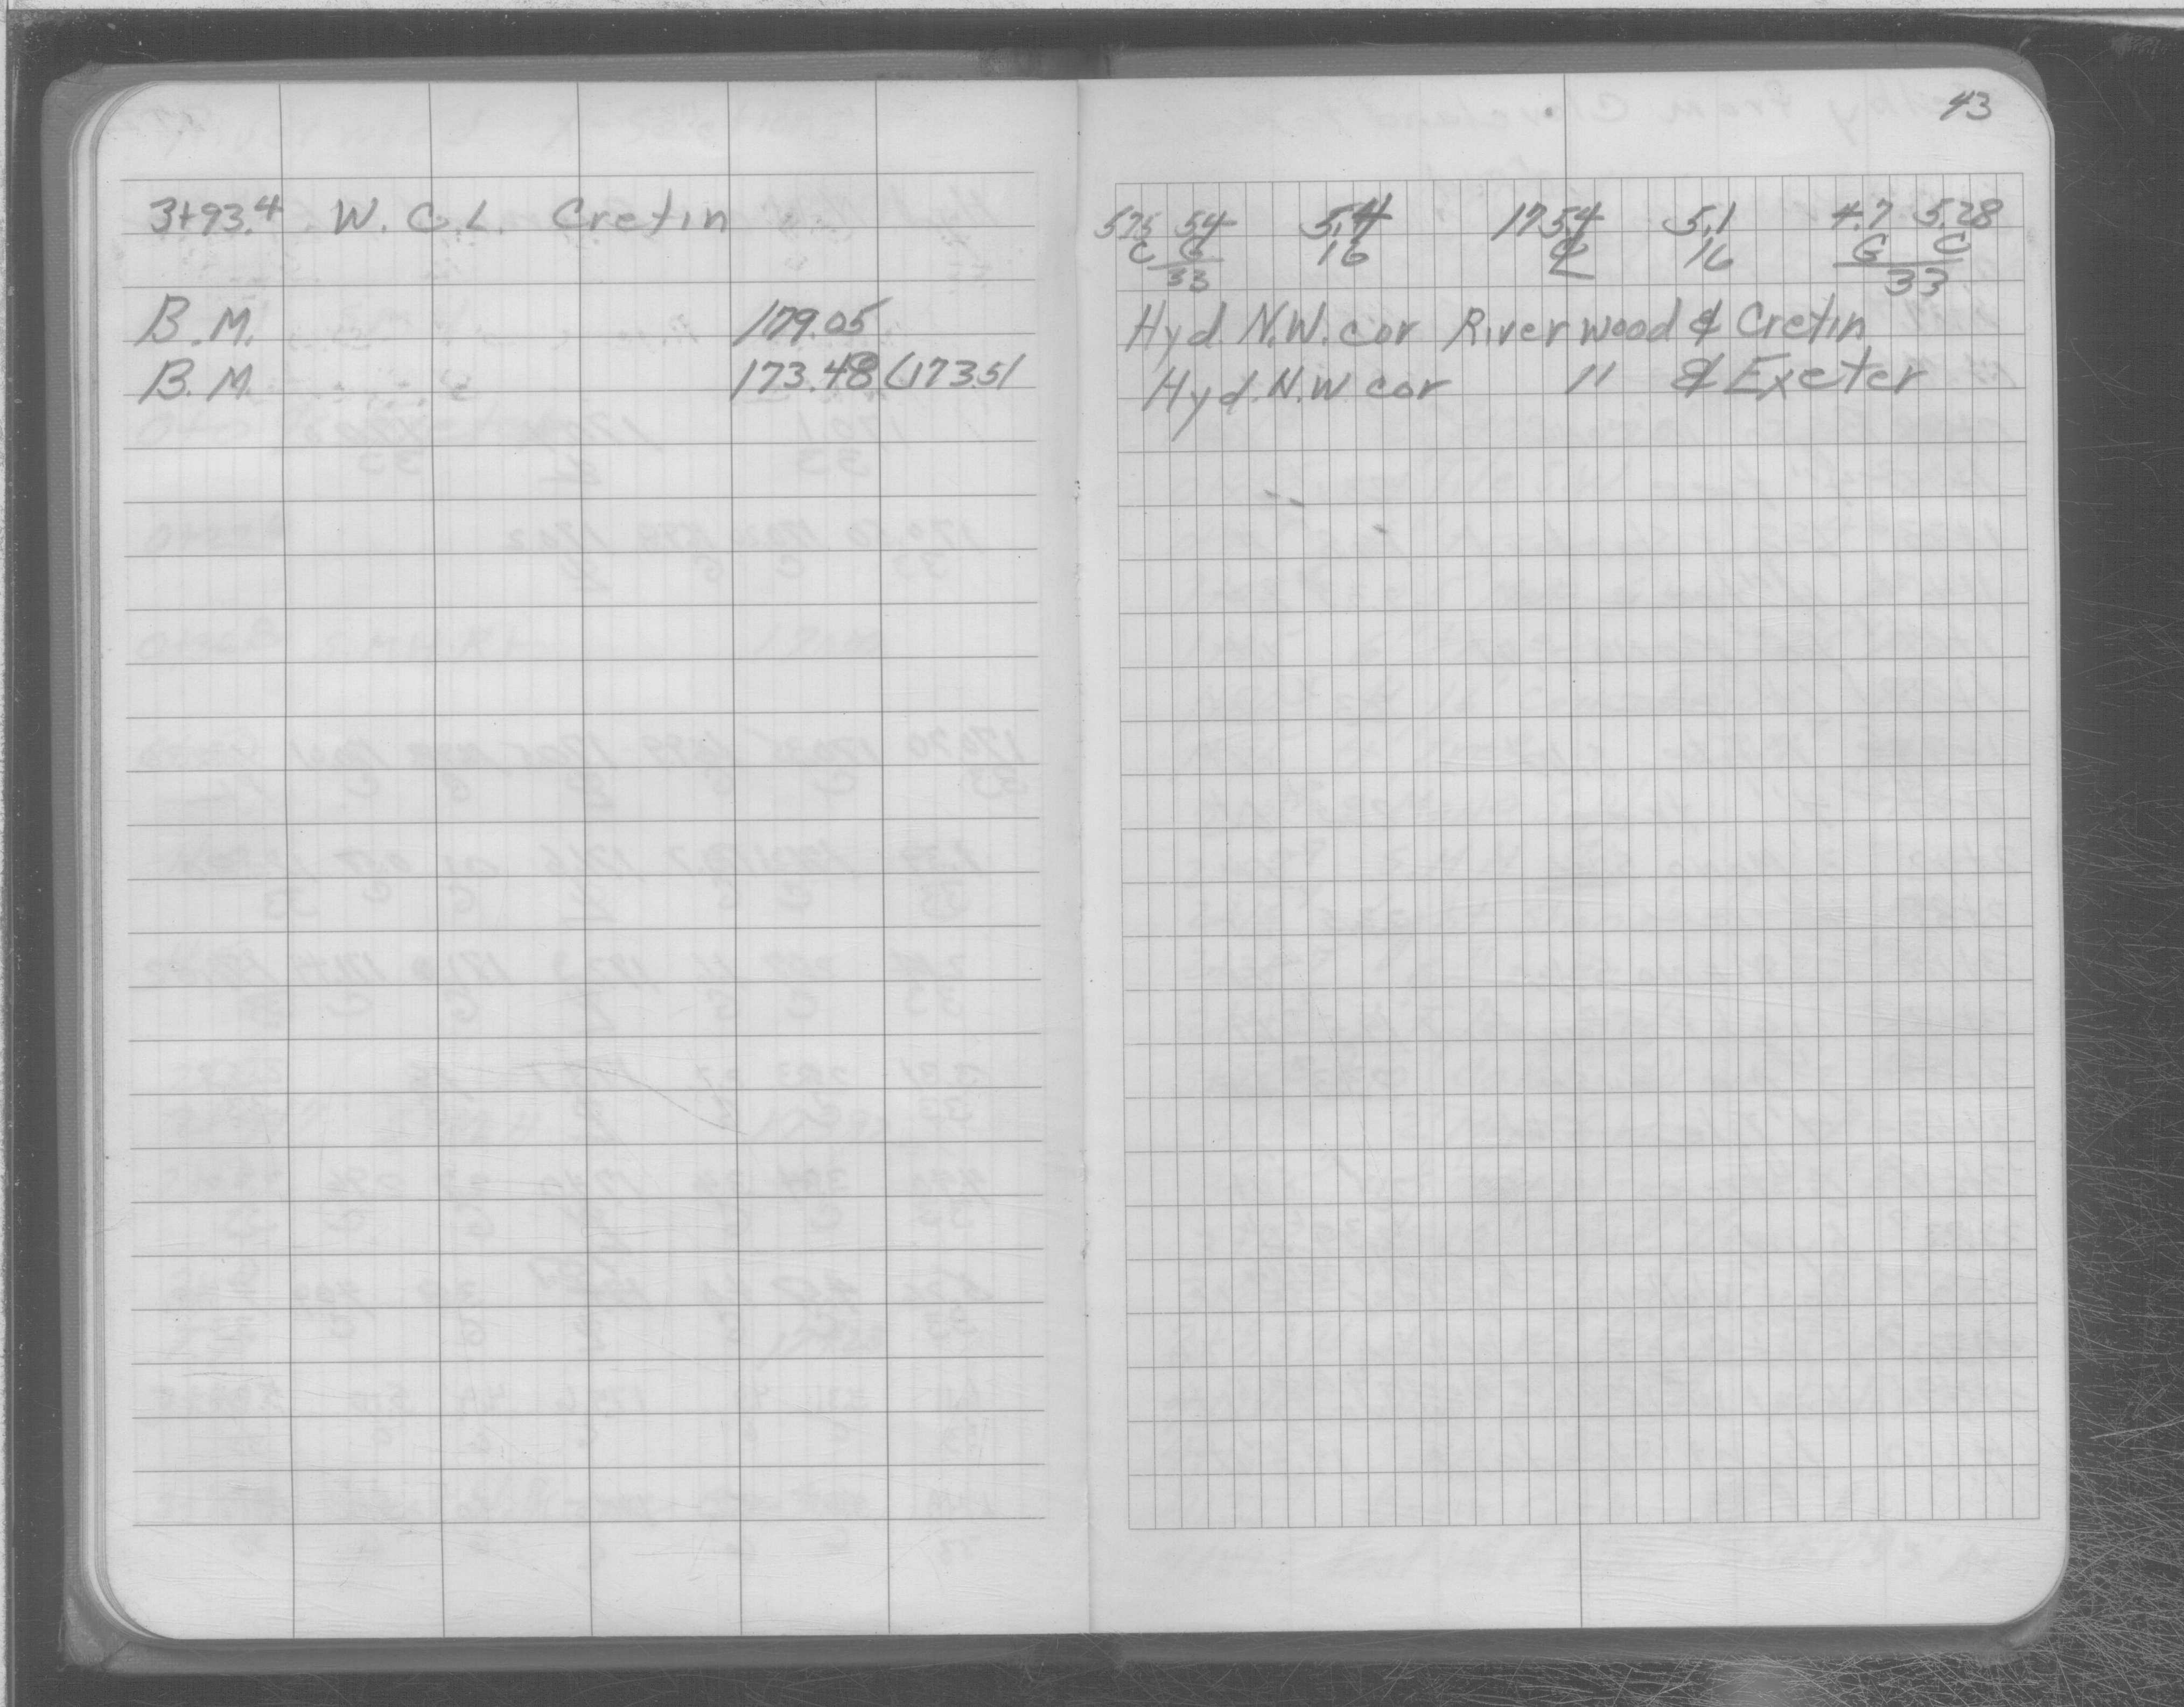 43
3+93.4 W. C. L. Cretin
575 54 5.4 1754 5.1 4.7 5.28
C G 16 ℄ 16 G C
33 33
B.M. 179.05 Hyd. N.W. cor Riverwood & Cretin
B.M. 173.48 (173.51 Hyd. N.W cor " & Exeter